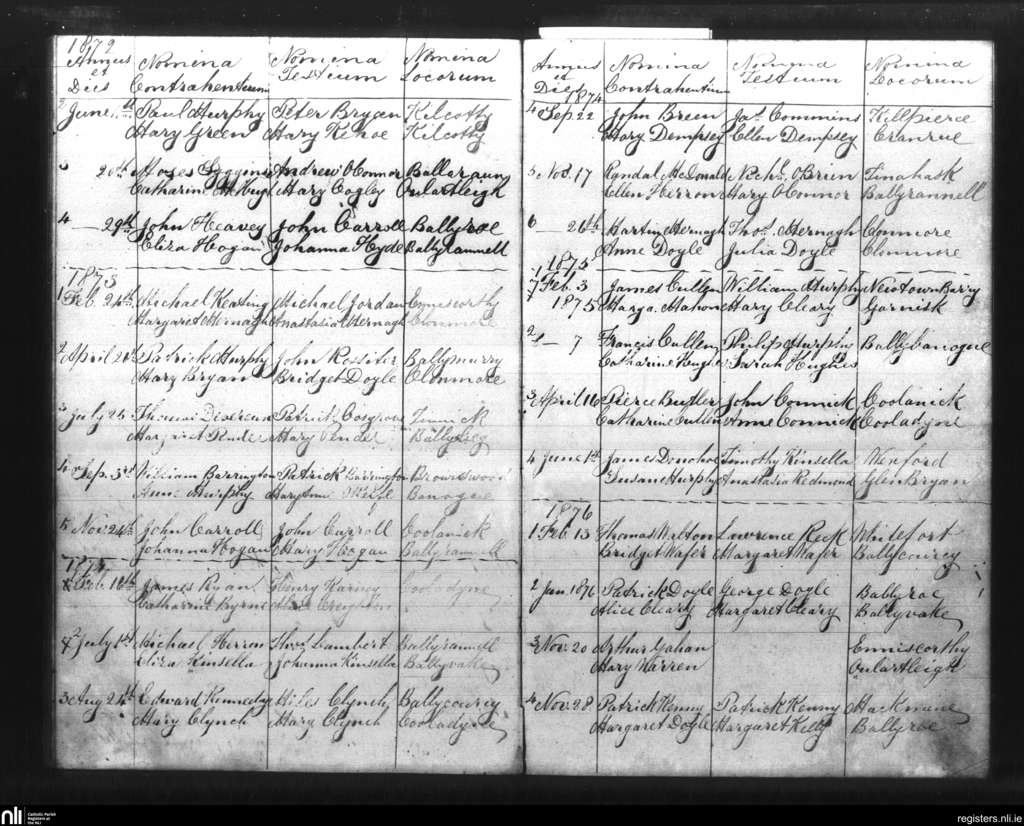 1872
Annus et Dies Nomina Contrahentium Nomina Testium Nomina Locorum
2 June 1st Paul Murphy Peter Bryan Kilcotty
Mary Green Mary Kehoe Kilcotty
3 20th Moses Andrew O'Connor
Catharine Mary Cogley Oulartleigh
4 29th John Heavey John Carroll Ballyroe
Eliza Hogan Johanna Hyde Ballyrannell
1873
1 Feb. 24th Michael Keating Michael Jordan Enniscorthy
Margaret Hernagh Anastasia Hernagh Clonmore
2 April 21st Patrick Murphy John Rossiter Ballymurry
Mary Bryan Bridget Doyle Clonmore
3 July 24 Thomas Devereux Patrick Cosgrove Tinnick
Margaret Mary Pender
4 Sep. 3rd William Barrington Patrick Barrington Brownswood
Anne Murphy Mary Anne Banogue
5 Nov. 24th John Carroll John Carroll Coolanick
Johanna Hogan Mary Hogan Ballyrannell
1874
Feb. 16th James Ryan Henry Karney Cooladyne
Catharine Byrne Creighton
2 July 1st Michael Herron Thos. Lambert Ballyrannell
Eliza Kinsella Johanna Kinsella Ballyvake
3 Aug 24th Edward Kennedy Miles Clynch Ballycourcy
Mary Clynch Mary Clynch Cooladyne
Annus et Dies Nomina Contrahentium Nomina Testium Nomina Locorum
1874
4 Sep. 22 John Breen Jas. Commins Killpierce
Mary Dempsey Ellen Dempsey Cranrue
5 Nov. 17 Mc Donald Nichs. O'Brien Tinahask
Ellen Herron Mary O'Connor Ballyrannell
6 26th Martin Hernagh Thos. Hernagh Clonmore
Anne Doyle Julia Doyle Clonmore
1875
1 Feb. 3 James Cullen William Murphy Newtown Barry
1875 Marga. Mahon Mary Cleary Garnisk
2 7 Francis Cullen Philip Murphy Ballybanogue
Catharine Hughes Sarah Hughes
3 April 16 Pierce Butler John Connick Coolanick
Catharine Cullen Anne Connick Cooladyne
4 June 1st James Donohoe Timothy Kinsella Wexford
Susan Murphy Anastasia Redmond Glen Bryan
1876
1 Feb 13 Thomas Welton Lawrence Reck Whitefort
Bridget Wafer Margaret Wafer Ballycourcy
2 Jan. 1876 Patrick Doyle George Doyle Ballyroe
Alice Cleary Margaret Cleary Ballyvake
3 Nov. 20 Arthur Gahan Enniscorthy
Mary Warren Oulartleigh
4 Nov. 28 Patrick Kenny Patrick Kenny Mackmine
Margaret Doyle Margaret Kelly Ballyroe
nli Catholic Parish Registers at the NLI
registers.nli.ie